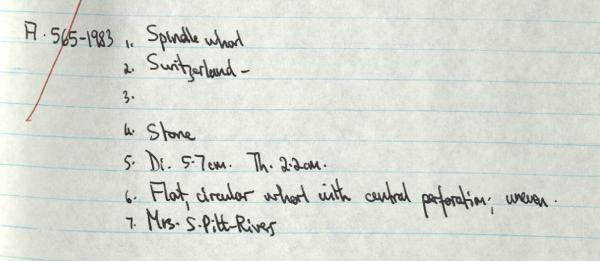 A. 565-1983 1. Spindle whorl
2. Switzerland -
3.
4. Stone
5. Di. 5.7cm. Th. 2.2cm.
6. Flat, circular whorl with central perforation; uneven.
7. Mrs. S. Pitt-Rivers